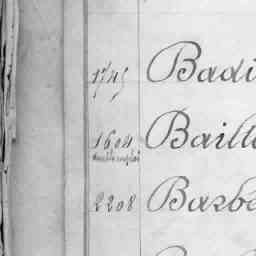 1745 Badi
1604 Baill
2208 Barbe